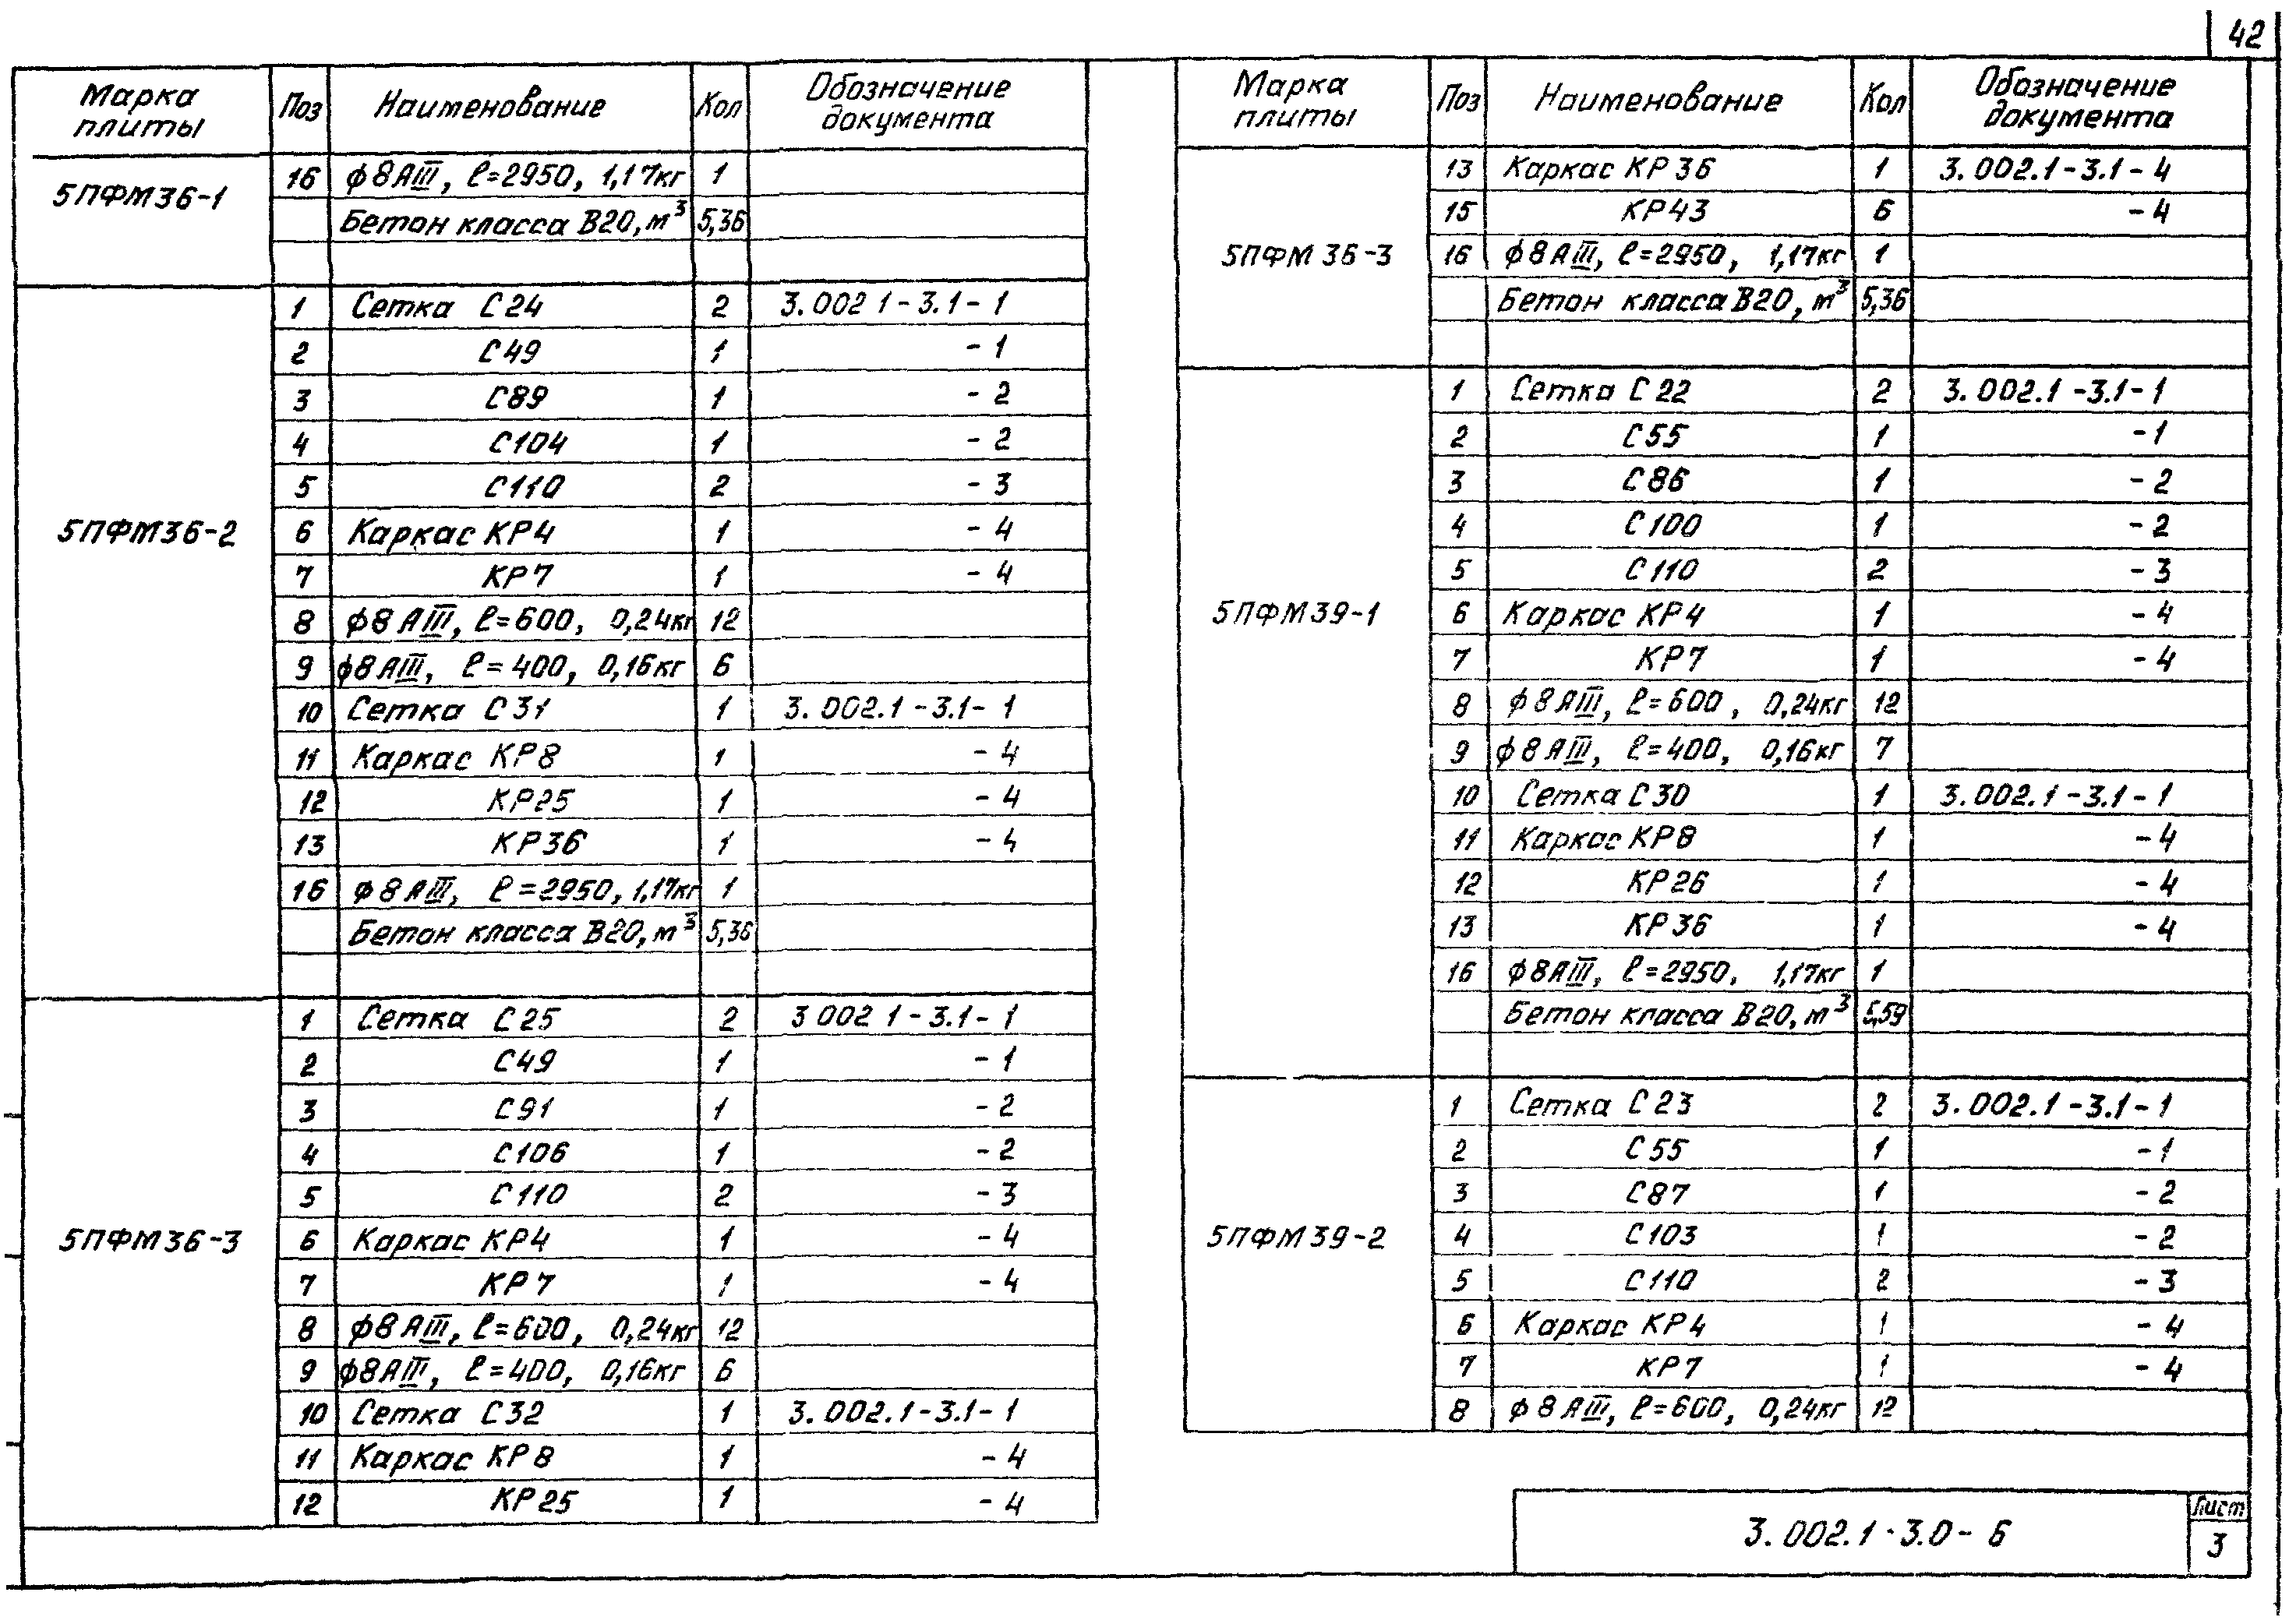 42
Марка плиты Поз Наименование Кол Обозначение документа
5ПФМ36-1
16 ϕ8АIII, ℓ=2950, 1,17кг 1
Бетон класса В20, м³ 5,36
5ПФМ36-2
1 Сетка С24 2 3.002 1-3.1-1
2 С49 1 -1
3 С89 1 -2
4 С104 1 -2
5 С110 2 -3
6 Каркас КР4 1 -4
7 КР7 1 -4
8 ϕ8АIII, ℓ=600, 0,24кг 12
9 ϕ8АIII, ℓ=400, 0,16кг 6
10 Сетка С31 1 3.002.1-3.1-1
11 Каркас КР8 1 -4
12 КР25 1 -4
13 КР36 1 -4
16 ϕ8АIII, ℓ=2950, 1,17кг 1
Бетон класса В20, м³ 5,36
5ПФМ36-3
1 Сетка С25 2 3 002 1-3.1-1
2 С49 1 -1
3 С91 1 -2
4 С106 1 -2
5 С110 2 -3
6 Каркас КР4 1 -4
7 КР7 1 -4
8 ϕ8АIII, ℓ=600, 0,24кг 12
9 ϕ8АIII, ℓ=400, 0,16кг 6
10 Сетка С32 1 3.002.1-3.1-1
11 Каркас КР8 1 -4
12 КР25 1 -4
Марка плиты Поз Наименование Кол Обозначение документа
5ПФМ36-3
13 Каркас КР36 1 3.002.1-3.1-4
15 КР43 6 -4
16 ϕ8АIII, ℓ=2950, 1,17кг 1
Бетон класса В20, м³ 5,36
5ПФМ39-1
1 Сетка С22 2 3.002.1-3.1-1
2 С55 1 -1
3 С86 1 -2
4 С100 1 -2
5 С110 2 -3
6 Каркас КР4 1 -4
7 КР7 1 -4
8 ϕ8АIII, ℓ=600, 0,24кг 12
9 ϕ8АIII, ℓ=400, 0,16кг 7
10 Сетка С30 1 3.002.1-3.1-1
11 Каркас КР8 1 -4
12 КР26 1 -4
13 КР36 1 -4
16 ϕ8АIII, ℓ=2950, 1,17кг 1
Бетон класса В20, м³ 5,59
5ПФМ39-2
1 Сетка С23 2 3.002.1-3.1-1
2 С55 1 -1
3 С87 1 -2
4 С103 1 -2
5 С110 2 -3
6 Каркас КР4 1 -4
7 КР7 1 -4
8 ϕ8АIII, ℓ=600, 0,24кг 12
3.002.1-3.0-6
Лист
3